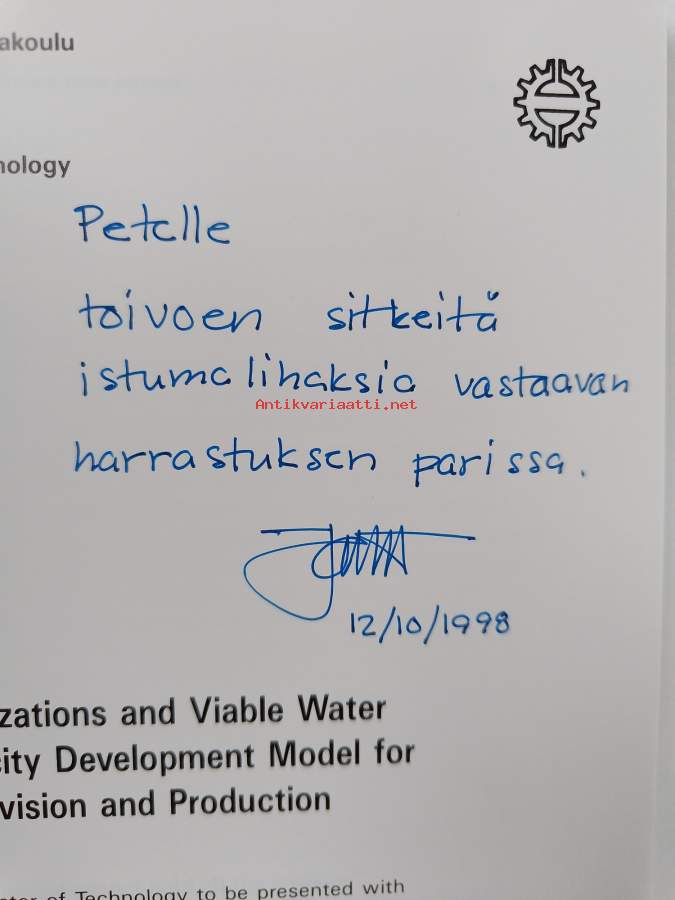 akoulu
nology
Petelle
toivoen sitkeitä
istumalihaksia vastaavan
Antikvariaatti.net
harrastuksen parissa.
12/10/1998
zations and Viable Water
city Development Model for
vision and Production
of Technology to be presented with